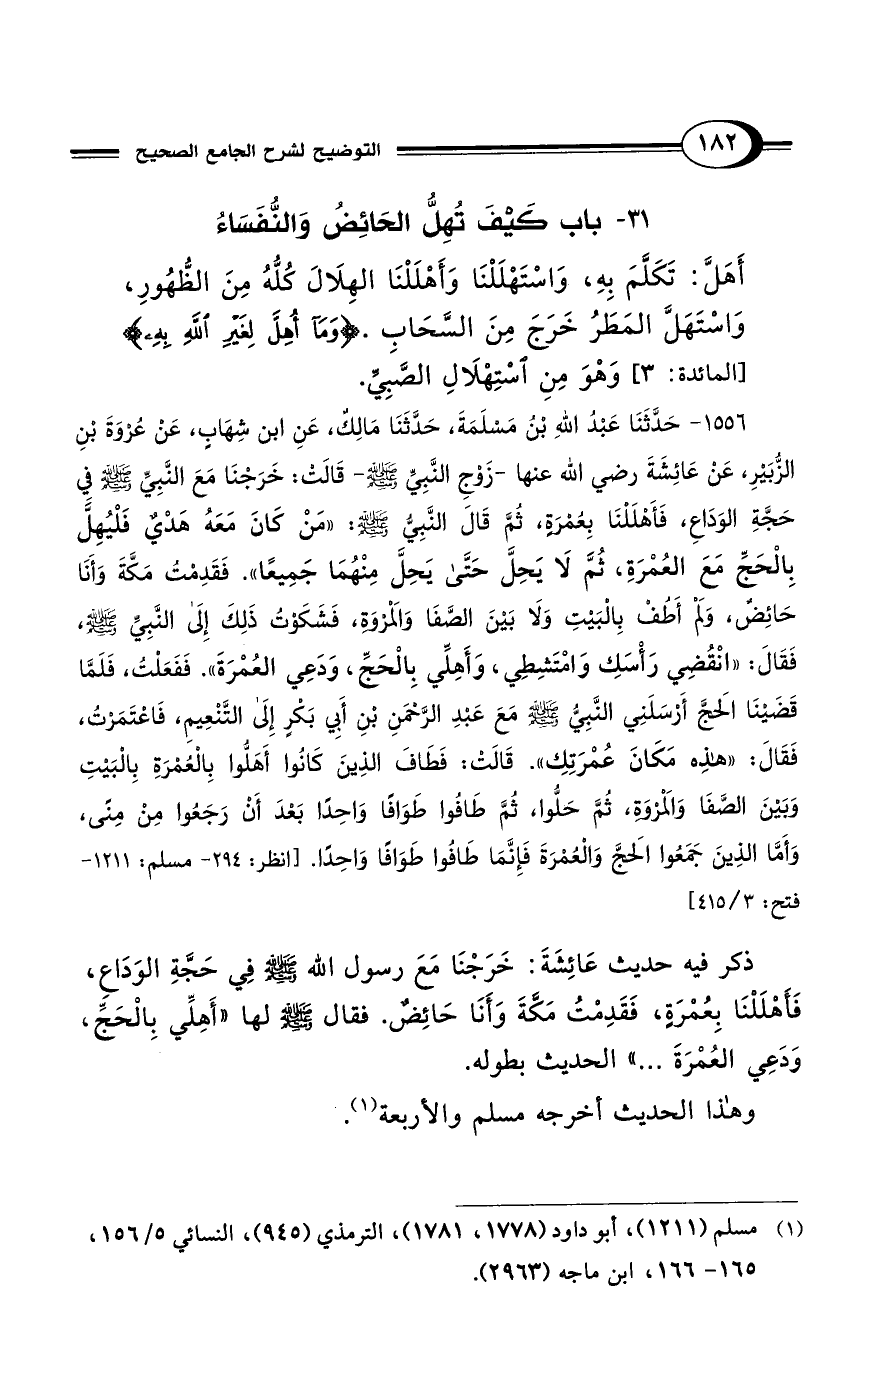 ١٨٢ التوضيح لشرح الجامع الصحيح
٣١- باب كَيْفَ تُهِلُّ الحَائِضُ وَالنُّفَسَاءُ
أَهَلَّ: تَكَلَّمَ بِهِ، وَاسْتَهْلَلْنَا وَأَهْلَلْنَا الهِلَالَ كُلُّهُ مِنَ الظُّهُورِ،
وَاسْتَهَلَّ المَطَرُ خَرَجَ مِنَ السَّحَابِ. ﴿وَمَآ أُهِلَّ لِغَيْرِ ٱللَّهِ بِهِۦ﴾
[المائدة: ٣] وَهْوَ مِنِ ٱسْتِهْلَالِ الصَّبِيِّ.
١٥٥٦- حَدَّثَنَا عَبْدُ اللهِ بْنُ مَسْلَمَةَ، حَدَّثَنَا مَالِكٌ، عَنِ ابن شِهَابٍ، عَنْ عُرْوَةَ بْنِ
الزُّبَيْرِ، عَنْ عَائِشَةَ رضي الله عنها -زَوْجِ النَّبِيِّ ﷺ- قَالَتْ: خَرَجْنَا مَعَ النَّبِيِّ ﷺ فِي
حَجَّةِ الوَدَاعِ، فَأَهْلَلْنَا بِعُمْرَةٍ، ثُمَّ قَالَ النَّبِيُّ ﷺ: «مَنْ كَانَ مَعَهُ هَدْيٌ فَلْيُهِلَّ
بِالْحَجِّ مَعَ العُمْرَةِ، ثُمَّ لَا يَحِلَّ حَتَّىٰ يَحِلَّ مِنْهُمَا جَمِيعًا». فَقَدِمْتُ مَكَّةَ وَأَنَا
حَائِضٌ، وَلَمْ أَطُفْ بِالْبَيْتِ وَلَا بَيْنَ الصَّفَا وَالْمَرْوَةِ، فَشَكَوْتُ ذَلِكَ إِلَىٰ النَّبِيِّ ﷺ،
فَقَالَ: «انْقُضِي رَأْسَكِ وَامْتَشِطِي، وَأَهِلِّي بِالْحَجِّ، وَدَعِي العُمْرَةَ». فَفَعَلْتُ، فَلَمَّا
قَضَيْنَا الَحجَّ أَرْسَلَنِي النَّبِيُّ ﷺ مَعَ عَبْدِ الرَّحْمَنِ بْنِ أَبِي بَكْرٍ إِلَىٰ التَّنْعِيمِ، فَاعْتَمَرْتُ،
فَقَالَ: «هٰذِه مَكَانَ عُمْرَتِكِ». قَالَتْ: فَطَافَ الذِينَ كَانُوا أَهَلُّوا بِالْعُمْرَةِ بِالْبَيْتِ
وَبَيْنَ الصَّفَا وَالْمَرْوَةِ، ثُمَّ حَلُّوا، ثُمَّ طَافُوا طَوَافًا وَاحِدًا بَعْدَ أَنْ رَجَعُوا مِنْ مِنًى،
وَأَمَّا الذِينَ جَمَعُوا الَحجَّ وَالْعُمْرَةَ فَإِنَّمَا طَافُوا طَوَافًا وَاحِدًا. [انظر: ٢٩٤- مسلم: ١٢١١-
فتح: ٤١٥/٣]
ذكر فيه حديث عَائِشَةَ: خَرَجْنَا مَعَ رسول الله ﷺ فِي حَجَّةِ الوَدَاعِ،
فَأَهْلَلْنَا بِعُمْرَةٍ، فَقَدِمْتُ مَكَّةَ وَأَنَا حَائِضٌ. فقال ﷺ لها «أَهِلِّي بِالْحَجِّ،
وَدَعِي العُمْرَةَ ...» الحديث بطوله.
وهٰذا الحديث أخرجه مسلم والأربعة(١).
(١) مسلم (١٢١١)، أبو داود (١٧٧٨، ١٧٨١)، الترمذي (٩٤٥)، النسائي ٥/ ١٥٦،
١٦٥- ١٦٦، ابن ماجه (٢٩٦٣).